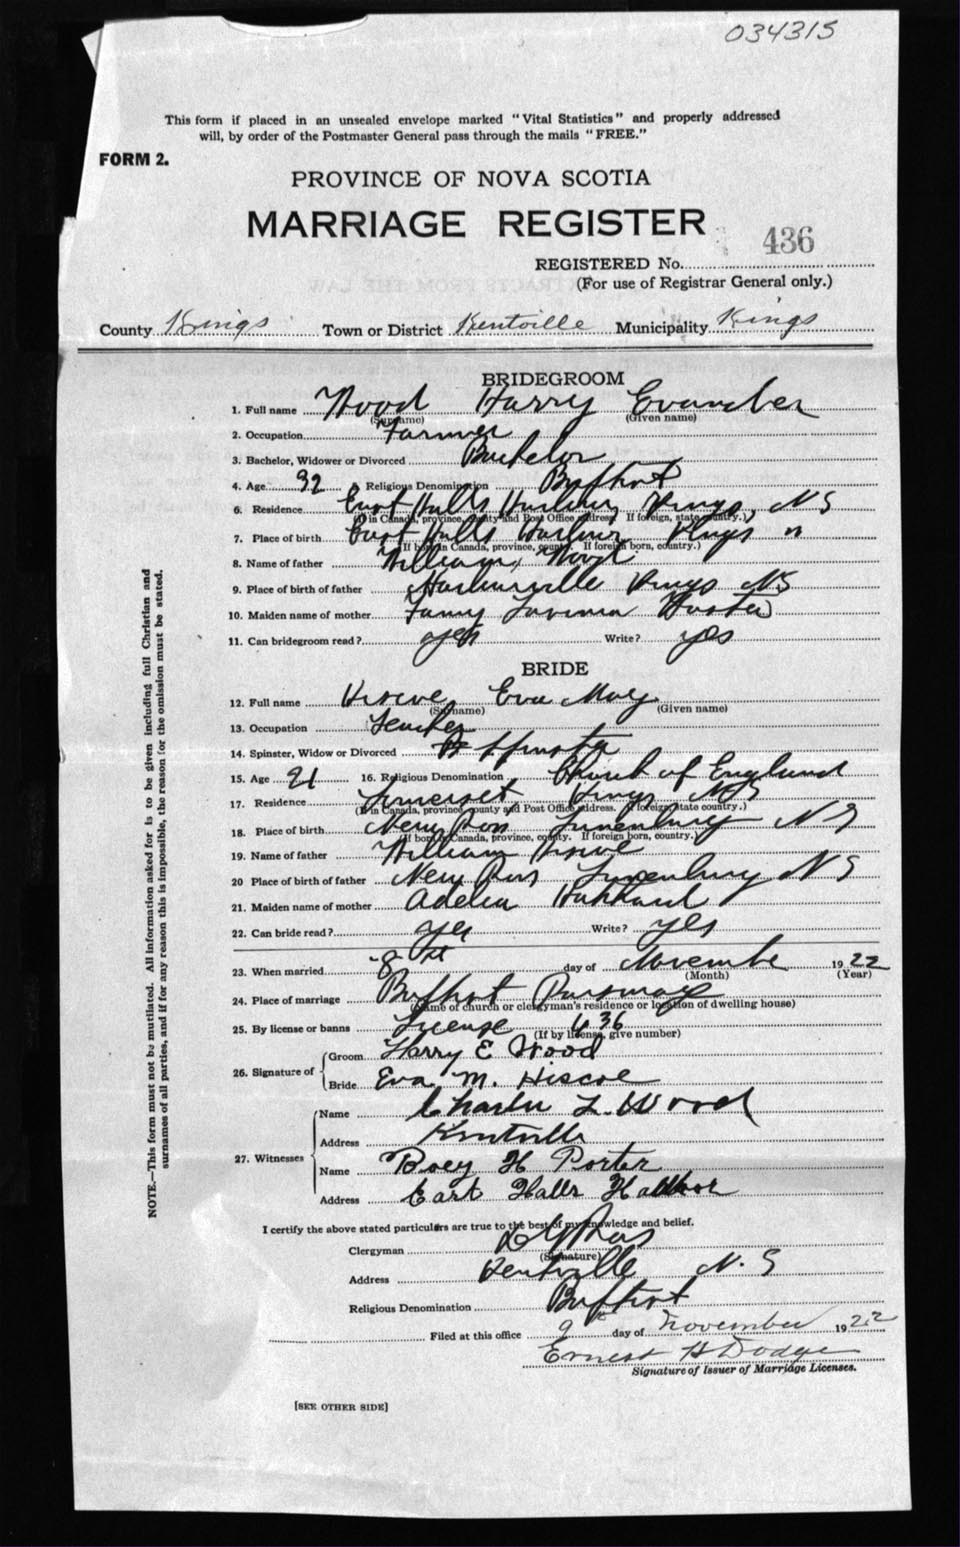 034315
This form if placed in an unsealed envelope marked "Vital Statistics" and properly addressed
will, by order of the Postmaster General pass through the mails "FREE."
FORM 2.
PROVINCE OF NOVA SCOTIA
MARRIAGE REGISTER
436
REGISTERED No.
(For use of Registrar General only.)
County Kings Town or District Kentville Municipality Kings
BRIDEGROOM
1. Full name Wood Harry Evander
(Surname) (Given name)
2. Occupation Farmer
3. Bachelor, Widower or Divorced Bachelor
4. Age 32 5. Religious Denomination Baptist
6. Residence East Halls Harbour, Kings, N S
(If in Canada, province, county and Post Office address. If foreign, state country.)
7. Place of birth East Halls Harbour Kings "
(If born in Canada, province, county. If foreign born, country.)
8. Name of father William Wood
9. Place of birth of father Harbourville Kings NS
10. Maiden name of mother Fanny Lavinia
11. Can bridegroom read? yes Write? yes
BRIDE
12. Full name Hiscoe Eva May
(Surname) (Given name)
13. Occupation Teacher
14. Spinster, Widow or Divorced Spinster
15. Age 21 16. Religious Denomination Church of England
17. Residence Somerset, Kings NS
(If in Canada, province, county and Post Office address. If foreign, state country.)
18. Place of birth New Ross Lunenburg N S
(If born in Canada, province, county. If foreign born, country.)
19. Name of father William Hiscoe
20 Place of birth of father New Ross Lunenburg N S
21. Maiden name of mother Adelia
22. Can bride read? yes Write? yes
23. When married 8 day of November 1922
(Month) (Year)
24. Place of marriage Baptist Parsonage
(Name of church or clergyman's residence or location of dwelling house)
25. By license or banns License 436
(If by license, give number)
26. Signature of
Groom Harry E Wood
Bride Eva M. Hiscoe
27. Witnesses
Name Charles L. Wood
Address Kentville
Name H Porter
Address East Halls Harbor
I certify the above stated particulars are true to the best of my knowledge and belief.
Clergyman
(Signature)
Address Kentville N. S
Religious Denomination Baptist
Filed at this office 9th day of November 1922
Ernest H Dodge
Signature of Issuer of Marriage Licenses.
[SEE OTHER SIDE]
NOTE.—This form must not be mutilated. All information asked for is to be given including full Christian and
surnames of all parties, and if for any reason this is impossible, the reason for the omission must be stated.